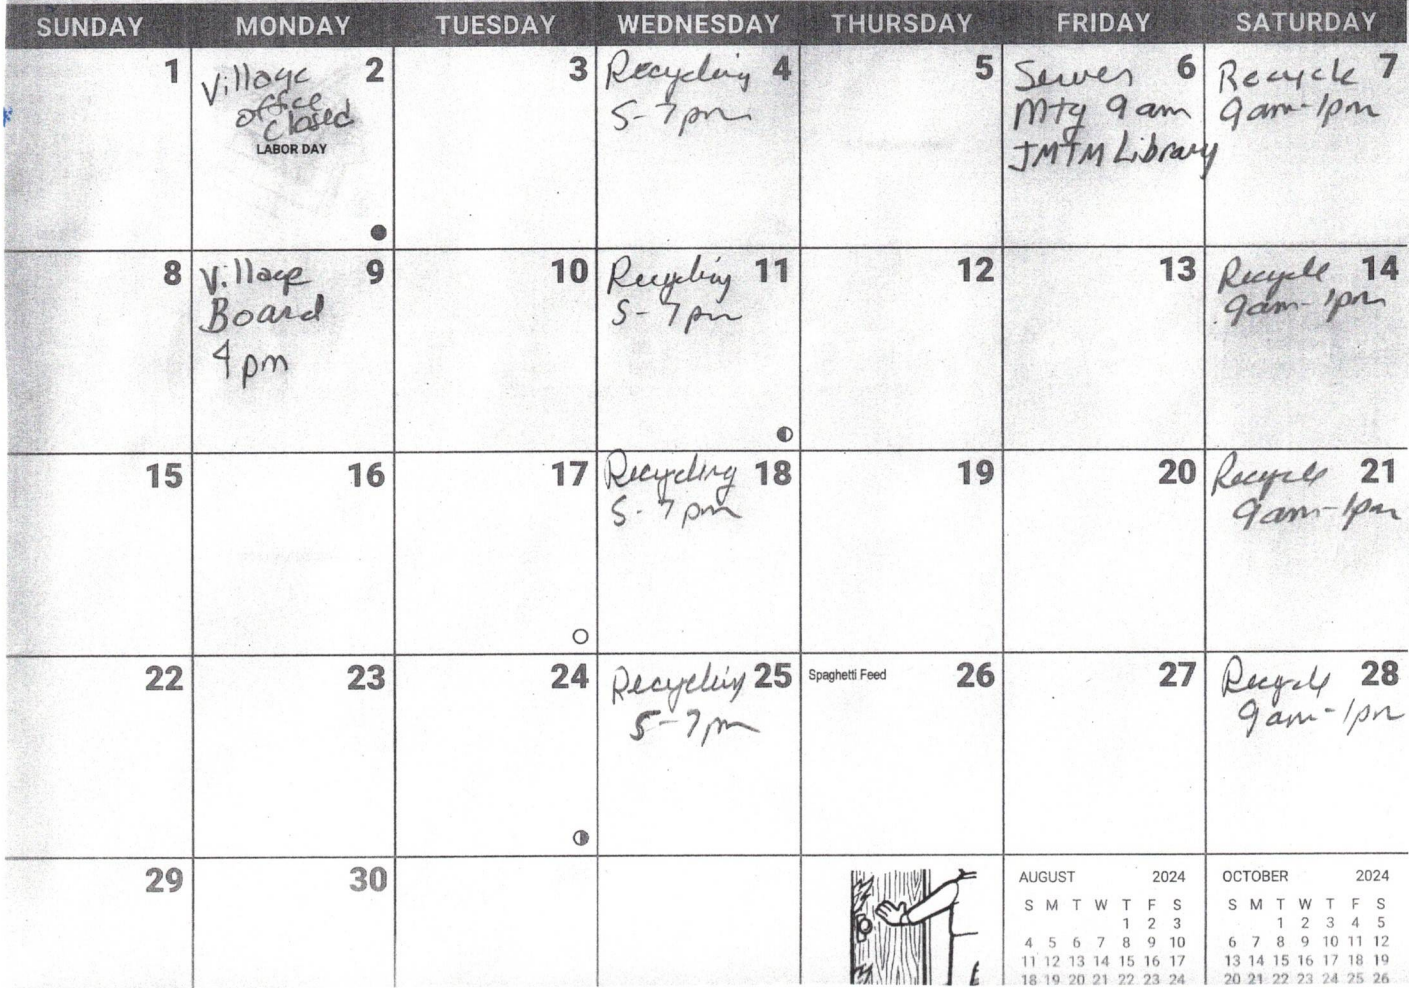 SUNDAY MONDAY TUESDAY WEDNESDAY THURSDAY FRIDAY SATURDAY
1
Village 2
office
closed
LABOR DAY
3
Recycling 4
5-7pm
5
Sewer 6
Mtg 9am
JMTM Library
Recycle 7
9am-1pm
8
Village 9
Board
4pm
10
Recycling 11
5-7pm
12
13
Recycle 14
9am-1pm
15
16
17
Recycling 18
5-7pm
19
20
Recycle 21
9am-1pm
22
23
24
Recycling 25
5-7pm
Spaghetti Feed 26
27
Recycle 28
9am-1pm
29
30
AUGUST 2024
S M T W T F S
1 2 3
4 5 6 7 8 9 10
11 12 13 14 15 16 17
18 19 20 21 22 23 24
OCTOBER 2024
S M T W T F S
1 2 3 4 5
6 7 8 9 10 11 12
13 14 15 16 17 18 19
20 21 22 23 24 25 26